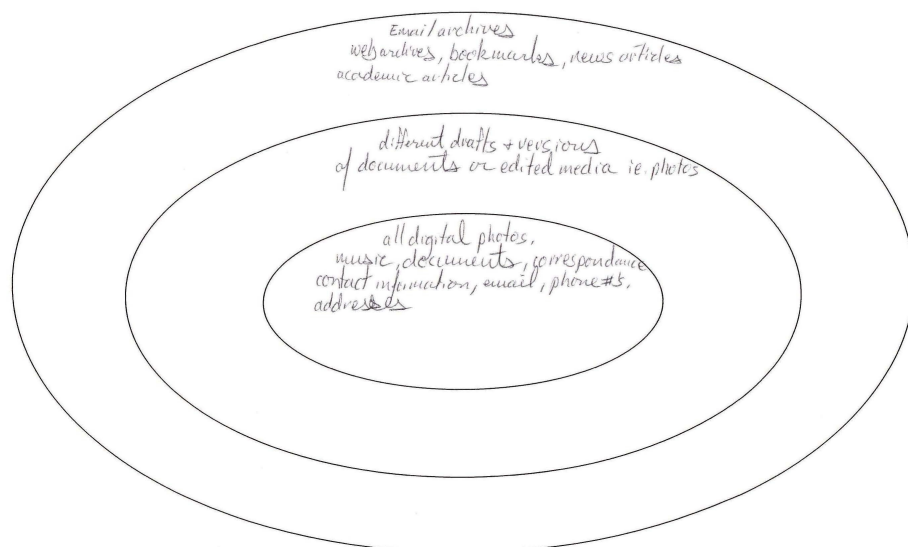 Email archives
web archives, bookmarks, news articles
academic articles
different drafts + versions
of documents or edited media ie. photos
all digital photos,
music, documents, correspondance
contact information, email, phone #s,
addresses